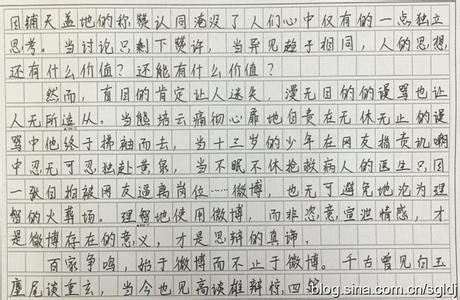 因铺天盖地的称赞认同淹没了人们心中仅有的一点独立
思考。当讨论只剩下赞许，当异见趋于相同，人的思想，
还有什么价值？还能有什么价值？
然而，盲目的肯定让人迷失，漫无目的的谩骂也让
人无所适从。当熊培云痛彻心扉地自责在无休无止的误
骂中他终于拂袖而去，当十三岁的少年在网友指责讥嘲
中忍无可忍独赴黄泉，当不眠不休抢救病人的医生只因
一张自拍被网友逼离岗位……微博，也无可避免地沦为理
智的火葬场。理智地使用微博，而非恣意宣泄情感，才
是微博存在的意义，才是思辩的真谛。
百家争鸣，始于微博而不止于微博。千古曾见白玉
麈尾谈重玄，当今也见高谈雄辩惊四筵
blog.sina.com.cn/sgldj